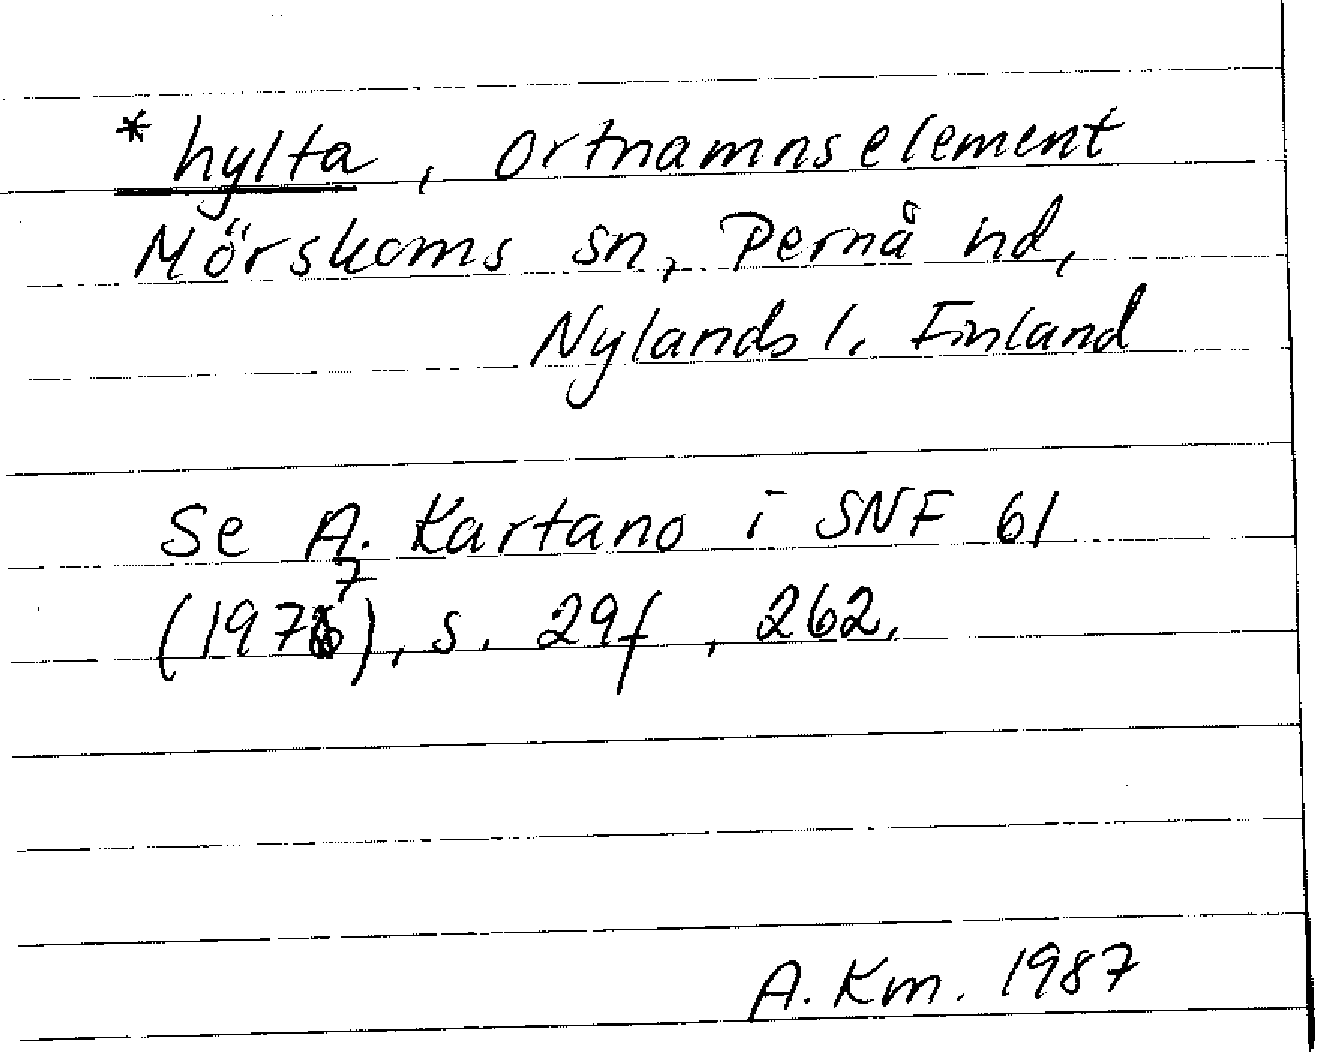 * hylta, Ortnamnselement
Mörskoms sn, Pernå hd,
Nylands l. Finland
Se A. Kartano i SNF 61
(1977), s. 29f, 262.
A. Km. 1987